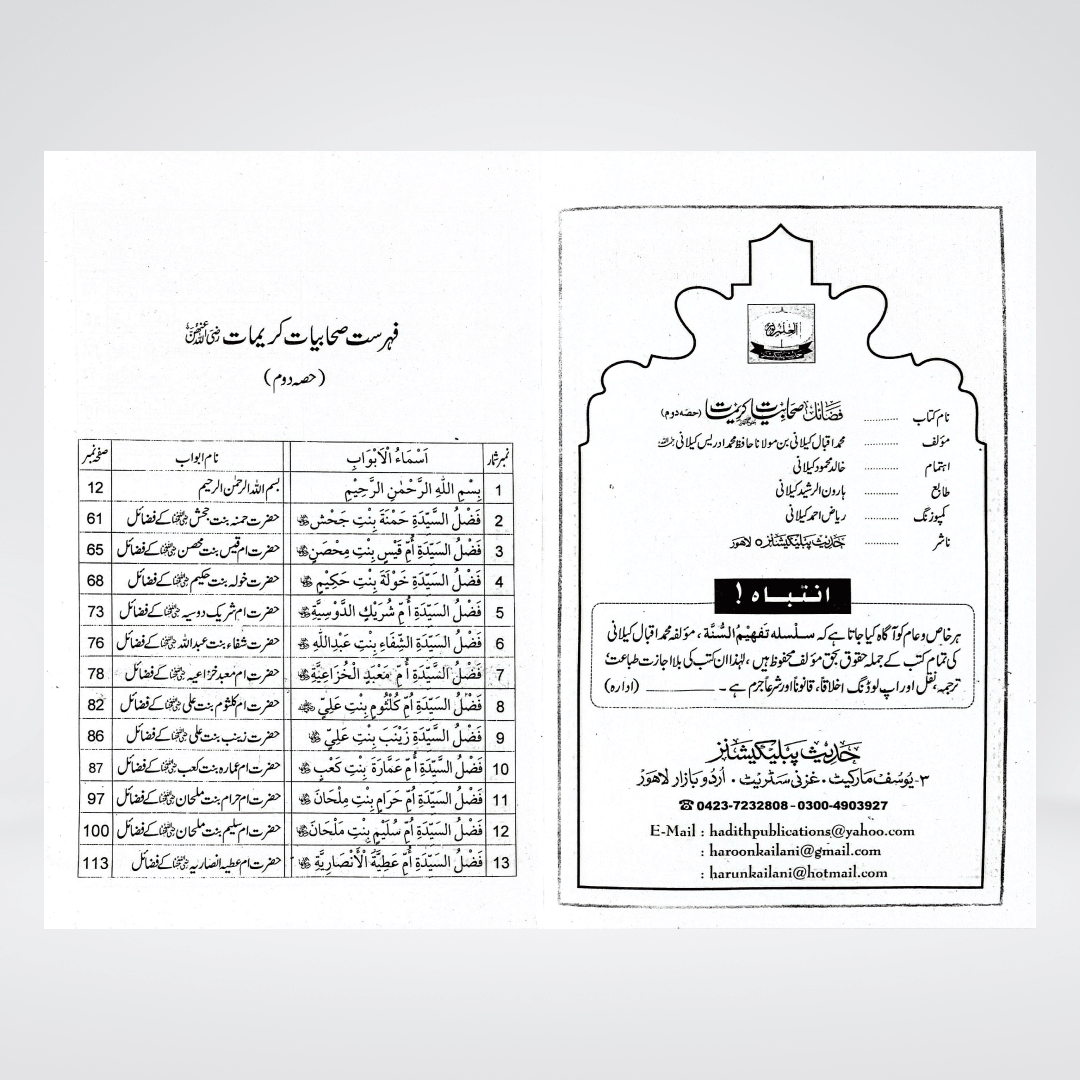 العلم نور
نام کتاب .......... فضائل صحابیات کریمات (حصہ دوم)
مؤلف .......... محمد اقبال کیلانی بن مولانا حافظ محمد ادریس کیلانی رحمہ اللہ
اہتمام .......... خالد محمود کیلانی
طابع .......... ہارون الرشید کیلانی
کمپوزنگ .......... ریاض احمد کیلانی
ناشر .......... حدیث پبلیکیشنز ٥ لاهور
انتباہ !
ہر خاص و عام کو آگاہ کیا جاتا ہے کہ سلسلہ تفهیمُ السُّنَّة ، مؤلفہ محمد اقبال کیلانی
کی تمام کتب کے جملہ حقوق بحق مؤلف محفوظ ہیں ، لہٰذا ان کتب کی بلا اجازت طباعت
ترجمہ، نقل اور اپ لوڈنگ اخلاقاً، قانوناً اور شرعاً جرم ہے ۔ ــــــــــــــ (ادارہ)
حدیث پبلیکیشنز
٣- یوسف مارکیٹ ۰ غزنی سٹریٹ ۰ اُردو بازار لاهور
☎ 0423-7232808 - 0300-4903927
E-Mail : hadithpublications@yahoo.com
: haroonkailani@gmail.com
: harunkailani@hotmail.com
فہرست صحابیات کریمات رضی اللہ عنھن
(حصہ دوم)
نمبر شمار اَسْمَاءُ الْاَبْوَابِ نام ابواب صفحہ نمبر
1 بِسْمِ اللّٰهِ الرَّحْمٰنِ الرَّحِيْمِ بسم اللہ الرحمٰن الرحیم 12
2 فَضْلُ السَّيِّدَةِ حَمْنَةَ بِنْتِ جَحْش رضی اللہ عنہا حضرت حمنہ بنت جحش رضی اللہ عنہا کے فضائل 61
3 فَضْلُ السَّيِّدَةِ أُمِّ قَيْسٍ بِنْتِ مِحْصَنٍ رضی اللہ عنہا حضرت ام قیس بنت محصن رضی اللہ عنہا کے فضائل 65
4 فَضْلُ السَّيِّدَةِ خَوْلَةَ بِنْتِ حَكِيْمٍ رضی اللہ عنہا حضرت خولہ بنت حکیم رضی اللہ عنہا کے فضائل 68
5 فَضْلُ السَّيِّدَةِ أُمِّ شُرَيْكٍ الدَّوْسِيَّةِ رضی اللہ عنہا حضرت ام شریک دوسیہ رضی اللہ عنہا کے فضائل 73
6 فَضْلُ السَّيِّدَةِ الشِّفَاءِ بِنْتِ عَبْدِاللّٰهِ رضی اللہ عنہا حضرت شفاء بنت عبداللہ رضی اللہ عنہا کے فضائل 76
7 فَضْلُ السَّيِّدَةِ أُمِّ مَعْبَدٍ الْخُزَاعِيَّةِ رضی اللہ عنہا حضرت ام معبد خزاعیہ رضی اللہ عنہا کے فضائل 78
8 فَضْلُ السَّيِّدَةِ أُمِّ كُلْثُوْمٍ بِنْتِ عَلِيٍّ رضی اللہ عنہا حضرت ام کلثوم بنت علی رضی اللہ عنہا کے فضائل 82
9 فَضْلُ السَّيِّدَةِ زَيْنَبَ بِنْتِ عَلِيٍّ رضی اللہ عنہا حضرت زینب بنت علی رضی اللہ عنہا کے فضائل 86
10 فَضْلُ السَّيِّدَةِ أُمِّ عَمَّارَةَ بِنْتِ كَعْبٍ رضی اللہ عنہا حضرت ام عمارہ بنت کعب رضی اللہ عنہا کے فضائل 87
11 فَضْلُ السَّيِّدَةِ أُمِّ حَرَامٍ بِنْتِ مِلْحَانَ رضی اللہ عنہا حضرت ام حرام بنت ملحان رضی اللہ عنہا کے فضائل 97
12 فَضْلُ السَّيِّدَةِ أُمِّ سُلَيْمٍ بِنْتِ مَلْحَانَ رضی اللہ عنہا حضرت ام سلیم بنت ملحان رضی اللہ عنہا کے فضائل 100
13 فَضْلُ السَّيِّدَةِ أُمِّ عَطِيَّةَ الْأَنْصَارِيَّةِ رضی اللہ عنہا حضرت ام عطیہ انصاریہ رضی اللہ عنہا کے فضائل 113